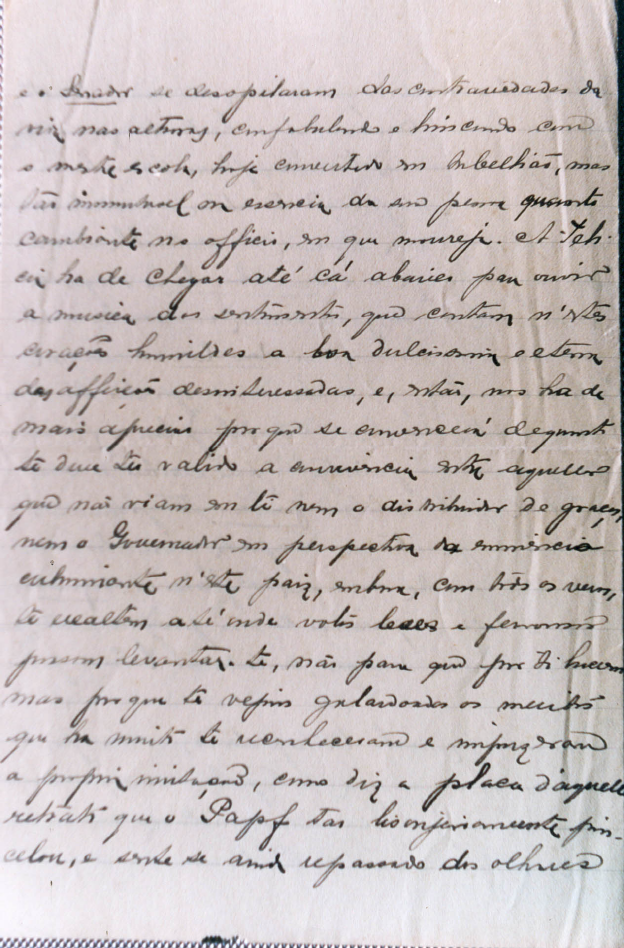 e o Senador se desopilaram das contrariedades da
vida nas alturas, confabulando e brincando com
o mestre escola, hoje convertido em tabelhião, mas
tão immutavel na essencia da sua pessoa quanto
cambiante no officio, em que moureja. A Feli-
cia ha de chegar até cá abaixo para ouvir
a musica dos sentimentos, que cantam n'estes
corações humildes a boa dulcissima e eterna
das affeições desinteressadas, e, então, nos ha de
mais apreciar porque se convencerá de quanto
te deve ter valido a convivencia entre aquelles
que não viam em ti nem o distribuidor de graças,
nem o Governador em perspectiva da eminencia
culminante n'este paiz, embora, com tudo os veros,
te exaltem até onde votos leaes e fervorosos
possam levantar-te, não para que por ti
mas porque te vejam galardoados os meritos
que ha muito te reconheceram e impuzeram
a propria imitação, como diz a placa d'aquelle
retrato que o Papf tão lisonjeiramente pin-
celou, e sente se ainda repassado dos olhares